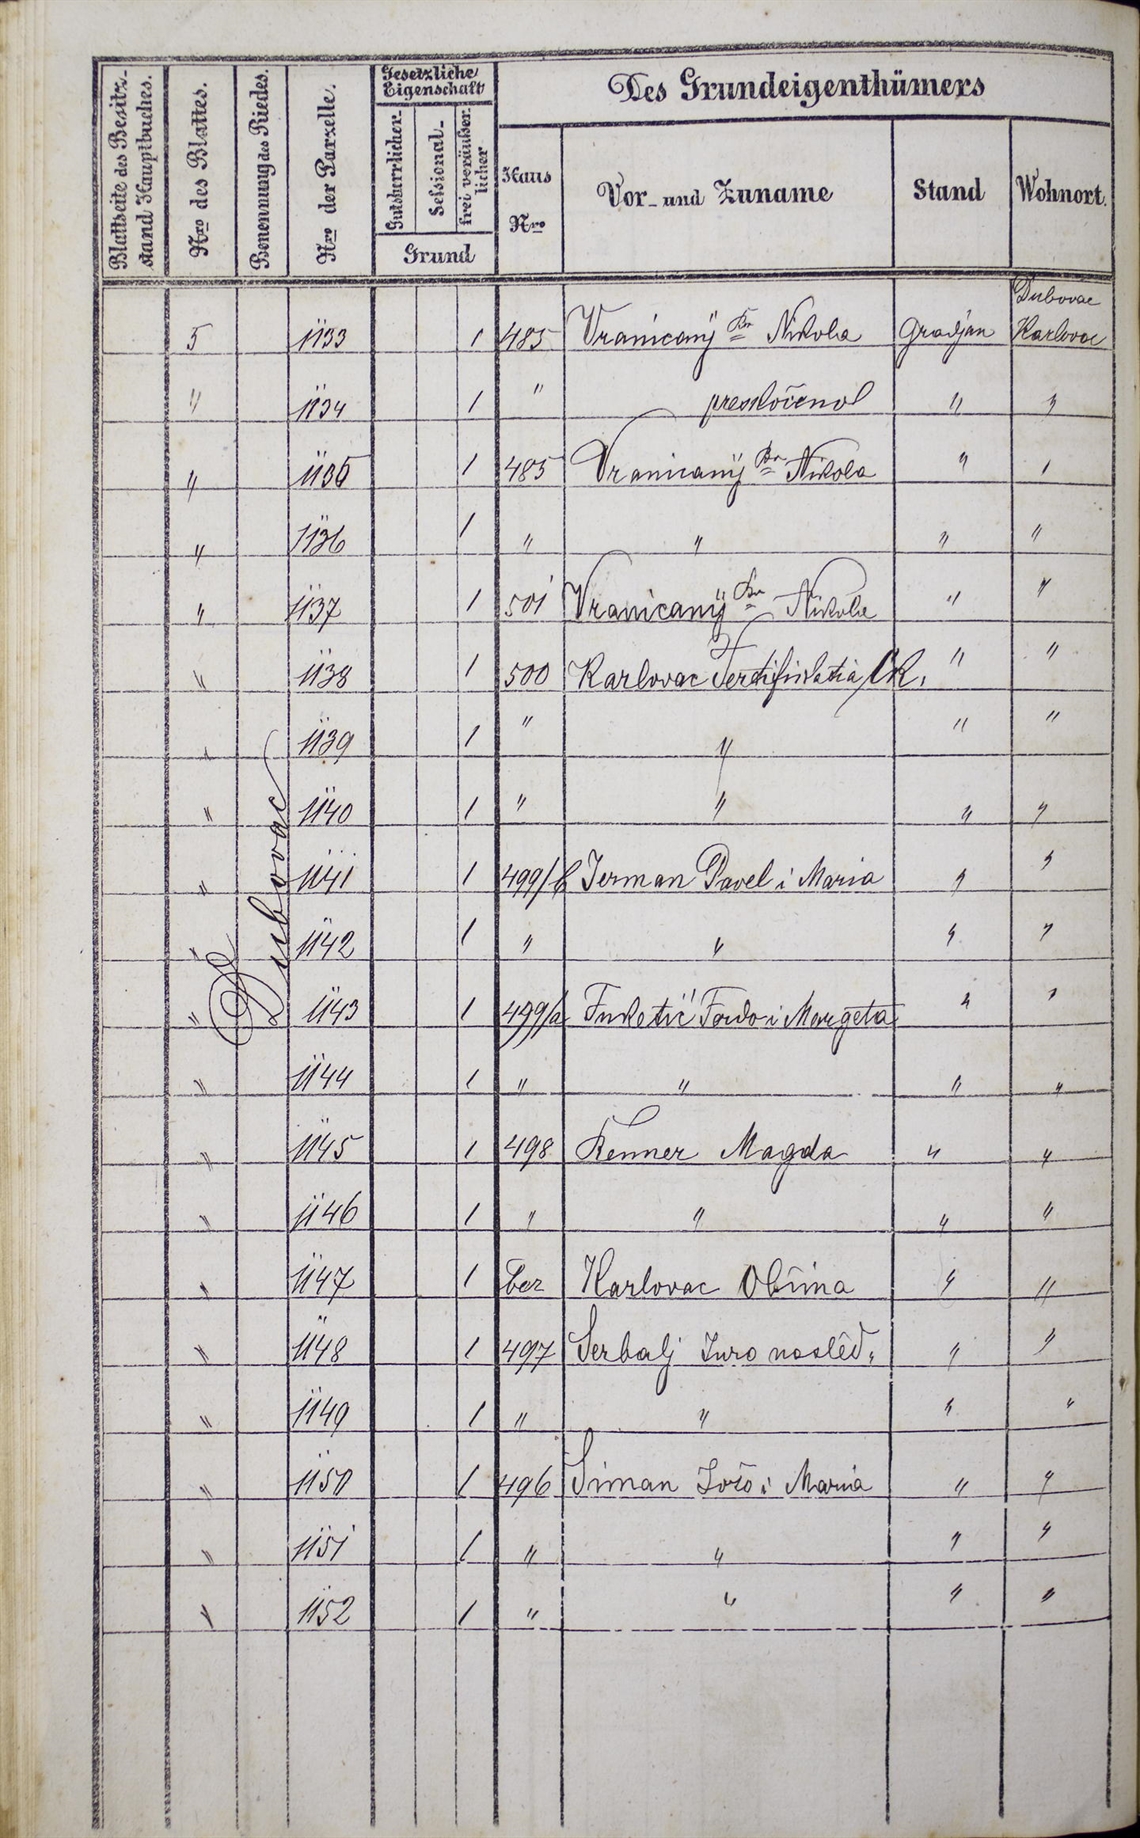 Blattseite des Besitz-
stand Hauptbuches.
Nro des Blattes.
Benennung des Riedes.
Nro der Parzelle.
Gesetzliche
Eigenschaft
Gutsherrlicher
Sessional-
frei veräußer
licher
Grund
Des Grundeigenthümers
Haus
Nro
Vor- und Zuname
Stand
Wohnort.
Dubovac
5 1133 1 485 Vranicanÿ Br Nikola Gradjan Karlovac
" 1134 1 " preskočeno " "
" 1135 1 485 Vranicanÿ Br Nikola " "
" 1136 1 " " " "
" 1137 1 501 Vranicanÿ Br Nikola " "
" 1138 1 500 Karlovac " "
" 1139 1 " " " "
" 1140 1 " " " "
" 1141 1 499/b Jerman Pavel i Maria " "
" 1142 1 " " " "
" 1143 1 499/a i Margeta " "
" 1144 1 " " " "
" 1145 1 498 Renner Magda " "
" 1146 1 " " " "
" 1147 1 bez Karlovac Obćina " "
" 1148 1 497 Serbalj Juro naslêd. " "
" 1149 1 " " " "
" 1150 1 496 Siman Jošo i Maria " "
" 1151 1 " " " "
" 1152 1 " " " "
Dubovac